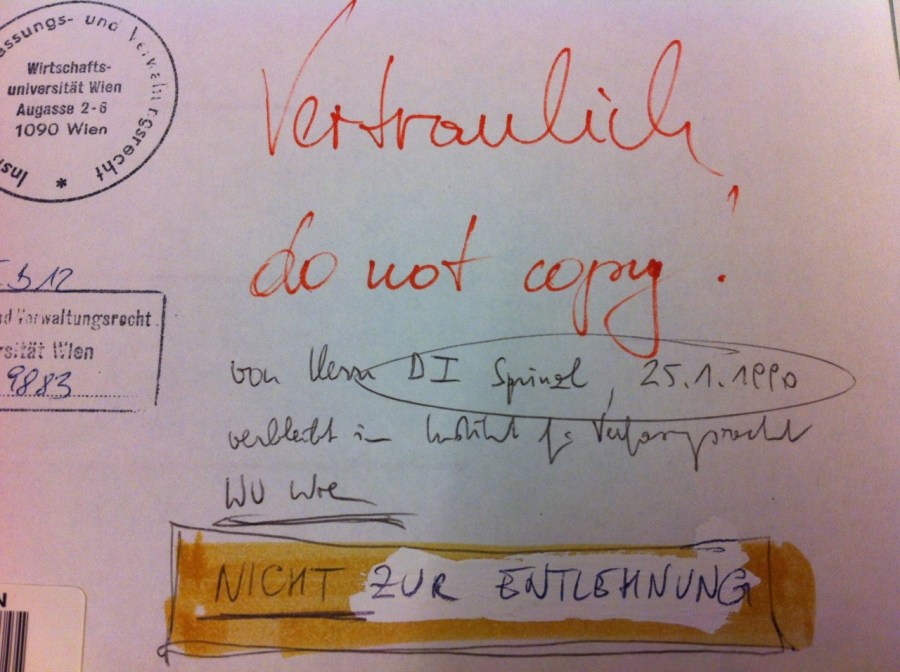 assungs- und Verwaltungsrecht * Ins
Wirtschafts-
universität Wien
Augasse 2-6
1090 Wien
Vertraulich
do not copy!
B 12
d Verwaltungsrecht
rsität Wien
9883
von Herrn DI 25.1.1990
verbleibt im Institut f. Verfassungsrecht
WU Wien
NICHT ZUR ENTLEHNUNG
N